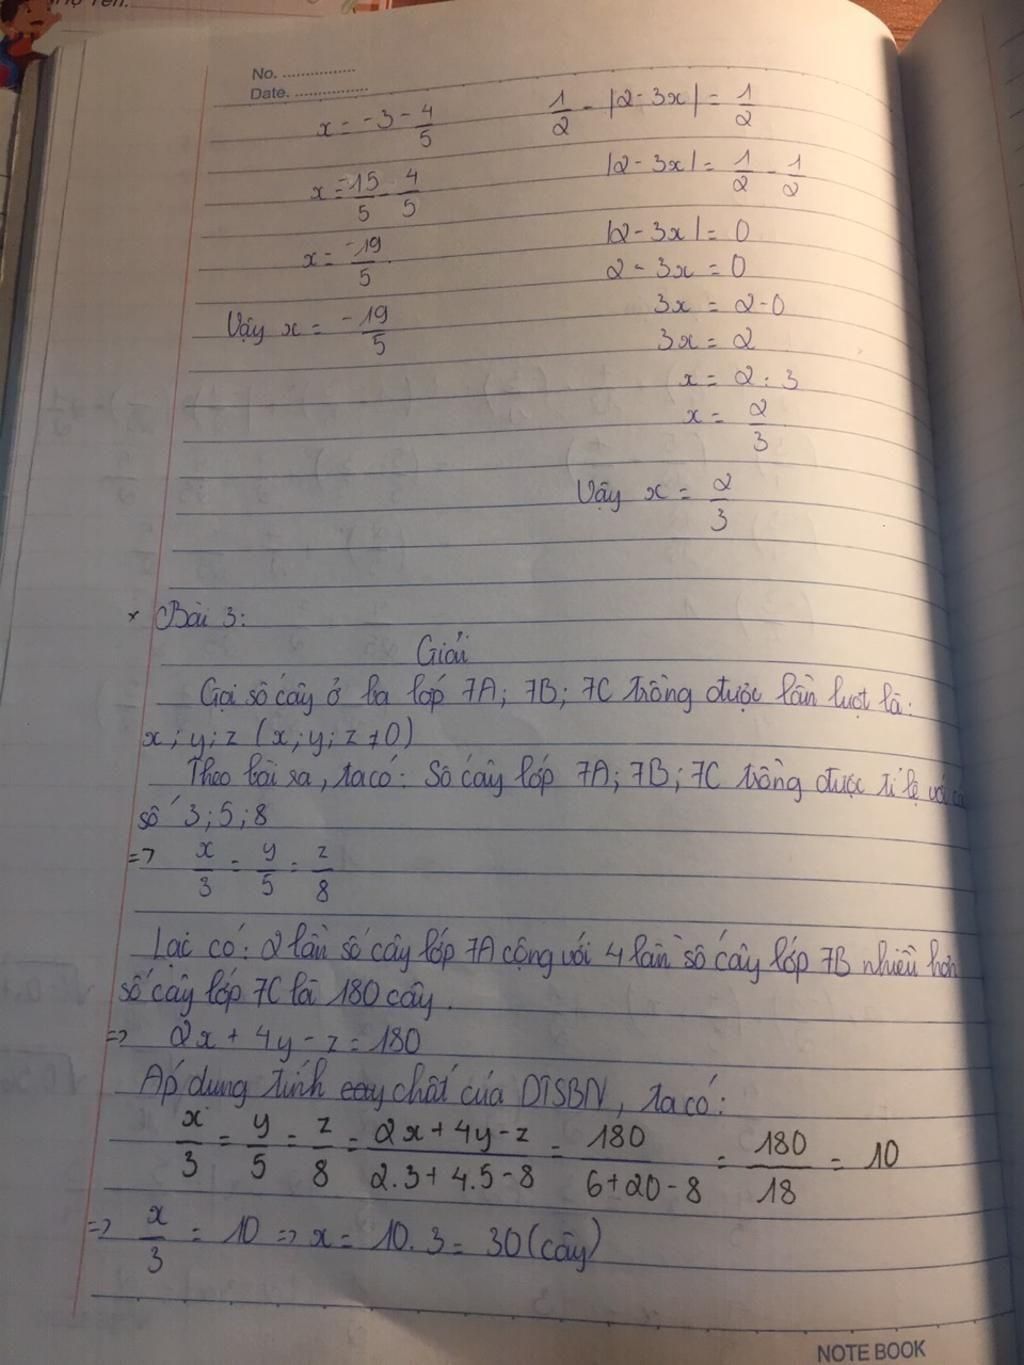 Họ Tên:
No. ................
Date. ................
x = -3 - 4/5
x = -15/5 - 4/5
x = -19/5
Vậy x = -19/5
1/2 - |2 - 3x| = 1/2
|2 - 3x| = 1/2 - 1/2
|2 - 3x| = 0
2 - 3x = 0
3x = 2 - 0
3x = 2
x = 2 : 3
x = 2/3
Vậy x = 2/3
* Bài 3:
Giải
Gọi số cây ở ba lớp 7A; 7B; 7C trồng được lần lượt là:
x; y; z (x; y; z ≠ 0)
Theo bài ra, ta có: Số cây lớp 7A; 7B; 7C trồng được tỉ lệ với
số 3; 5; 8
=> x/3 = y/5 = z/8
Lại có: 2 lần số cây lớp 7A cộng với 4 lần số cây lớp 7B nhiều hơn
số cây lớp 7C là 180 cây.
=> 2x + 4y - z = 180
Áp dụng tính chất của DTSBN, ta có:
x/3 = y/5 = z/8 = (2x + 4y - z)/(2.3 + 4.5 - 8) = 180/(6 + 20 - 8) = 180/18 = 10
=> x/3 = 10 => x = 10. 3 = 30 (cây)
NOTE BOOK